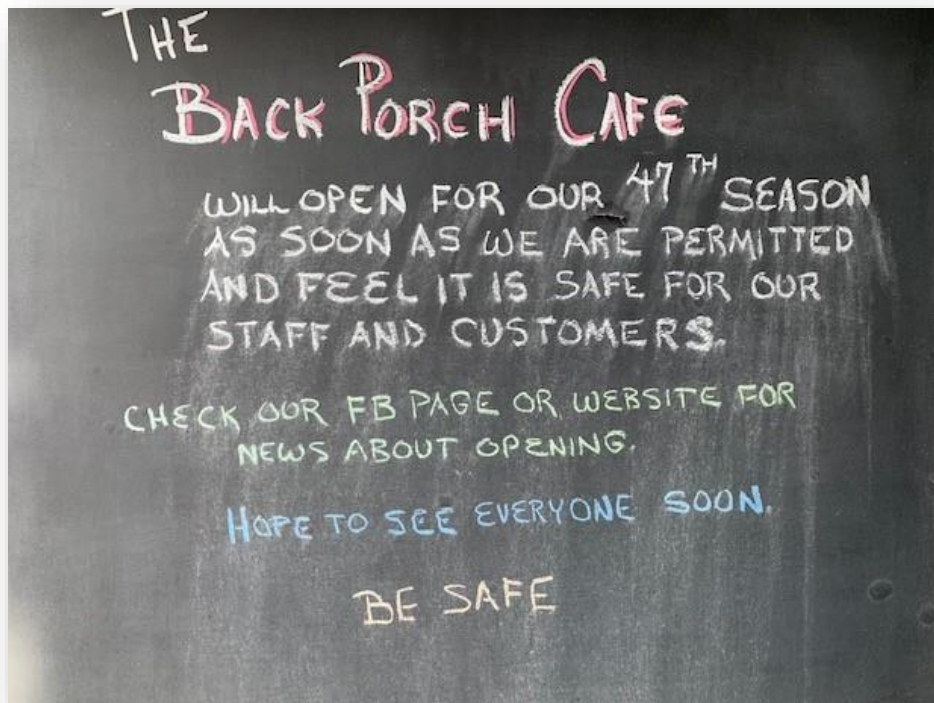 THE
BACK PORCH CAFE
WILL OPEN FOR OUR 47TH SEASON
AS SOON AS WE ARE PERMITTED
AND FEEL IT IS SAFE FOR OUR
STAFF AND CUSTOMERS.
CHECK OUR FB PAGE OR WEBSITE FOR
NEWS ABOUT OPENING.
HOPE TO SEE EVERYONE SOON.
BE SAFE